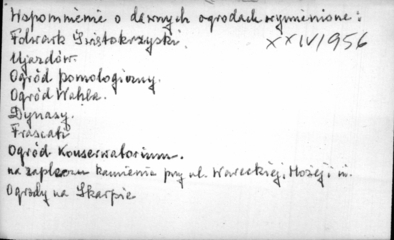 Wspomnienie o dawnych ogrodach wymienione:
Folwark Świętokrzyski. XXIV/1956
Ujazdów.
Ogród pomologiczny.
Ogród Wahla.
Dynasy.
Frascati
Ogród Konserwatorium.
na zapleczu kamienic przy ul. Wareckiej, Hożej i in.
Ogrody na Skarpie